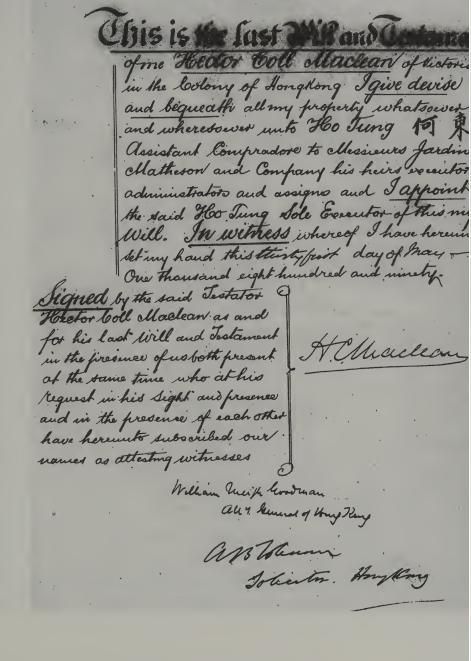 This is the last Will and Testame
of me Hector Coll Maclean of Victoria
in the Colony of Hongkong I give devise
and bequeath all my property whatsoever
and wheresoever unto Ho Tung 何東
Assistant Compradore to Messieurs Jardin
Matheson and Company his heirs executor
administrators and assigns and I appoint
the said Ho Tung Sole Executor of this my
Will. In witness whereof I have hereun
set my hand this thirty first day of May
One thousand eight hundred and ninety.
Signed by the said Testator
Hector Coll Maclean as and
for his last Will and Testament
in the presence of us both present
at the same time who at his
request in his sight and presence
and in the presence of each other
have hereunto subscribed our
names as attesting witnesses
H.C. Maclean
William Meigh Goodman
Att.y General of Hong Kong
Solicitor. Hong Kong